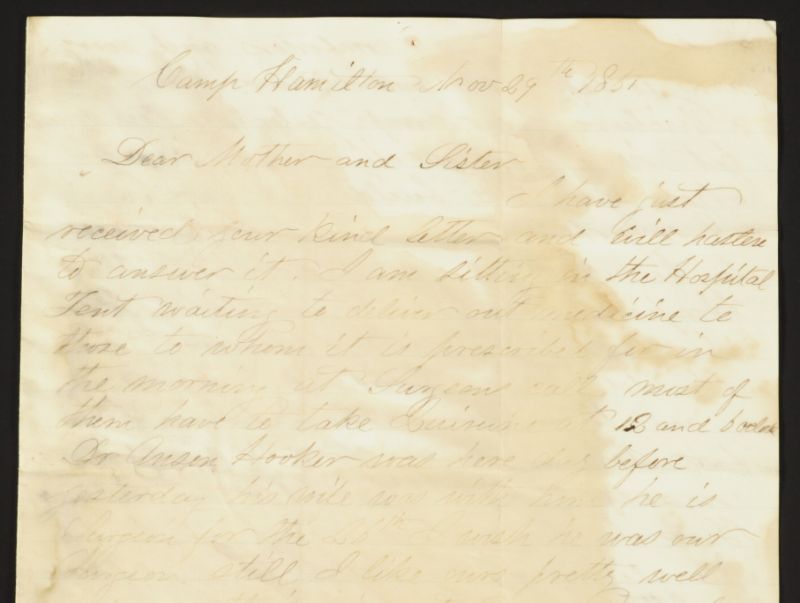 Camp Hamilton Nov 29th 1861
Dear Mother and Sister
I have just
received your kind letter and will hasten
to answer it. I am sitting in the Hospital
Tent waiting to deliver out medicine to
those to whom it is prescribed for in
the morning at Surgeons call most of
them have to take Quinine at 12 and 6 oclock
Dr Anson Hooker was here day before
yesterday his wife was with him he is
Surgeon for the 26th I wish he was our
Surgeon still I like ours pretty well